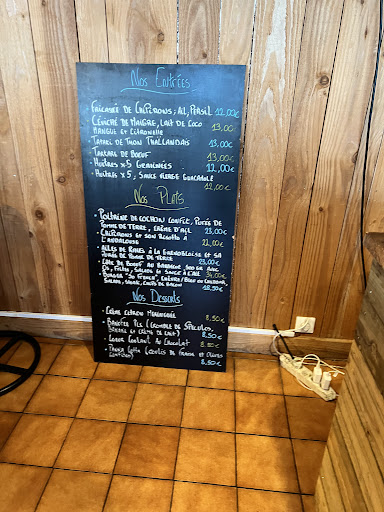 Nos Entrées
FRICASSÉE DE CHIPIRONS, AIL, PERSIL 12,00€
CEVICHE DE MAIGRE, LAIT DE COCO
MANGUE ET CITRONNELLE 13,00€
TATAKI DE THON THAILLANDAIS 13,00€
TARTARE DE BOEUF 13,00€
HUÎTRES x 5 GRATINÉES 12,00€
HUÎTRES x 5, SAUCE VIERGE GUACAMOLE
12,00€
Nos Plats
POITRINE DE COCHON CONFIT, PURÉE DE
POMME DE TERRE, CRÈME D'AIL 23,00€
CHIPIRONS ET SON RISOTTO À
L'ANDALOUSE 22,00€
AILES DE RAIES À LA GRENOBLOISE ET SA
PURÉE DE POMME DE TERRE 23,00€
CÔTE DE BOEUF AU BARBECUE, 300 GR AVEC
OS, FRITES, SALADE ET SAUCE À L'AIL 34,00€
BURGER "SO FRENCH", CHÈVRE/BLEU OU CHEDDAR,
SALADE, STEAK, CHIPS DE BACON 18,50€
Nos Desserts
CRÈME CITRON MERINGUÉE 8,50€
BANOFFEE PIE (CRUMBLE DE SPÉCULOS,
BANANE ET CRÈME DE LAIT) 8,50€
COEUR COULANT AU CHOCOLAT 8,50€
PANNA COTTA (COULIS DE FRAISE ET
8,50€